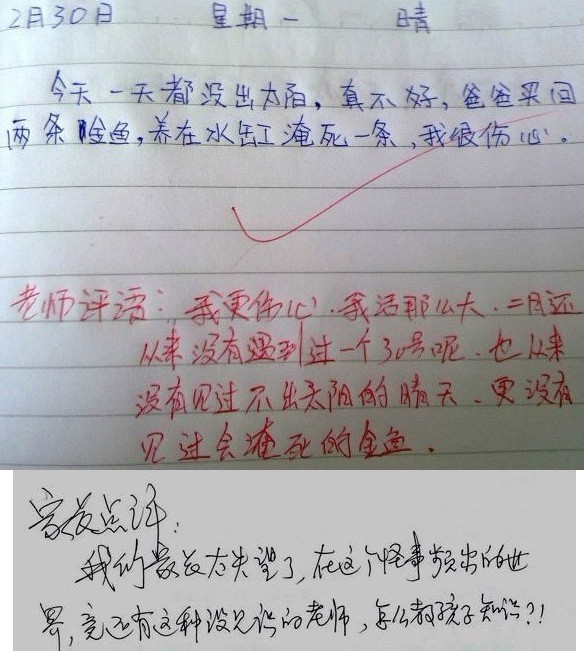 2月30日 星期一 晴
今天一天都没出太阳，真不好，爸爸买回
两条金鱼，养在水缸淹死一条，我很伤心。
老师评语：我更伤心．我活那么大．二月还
从来没有遇到过一个30号呢．也从来
没有见过不出太阳的晴天．更没有
见过会淹死的金鱼．
家长点评：
我们家长太失望了，在这个怪事频出的世
界，竟还有这种没见识的老师，怎么教孩子知识?!